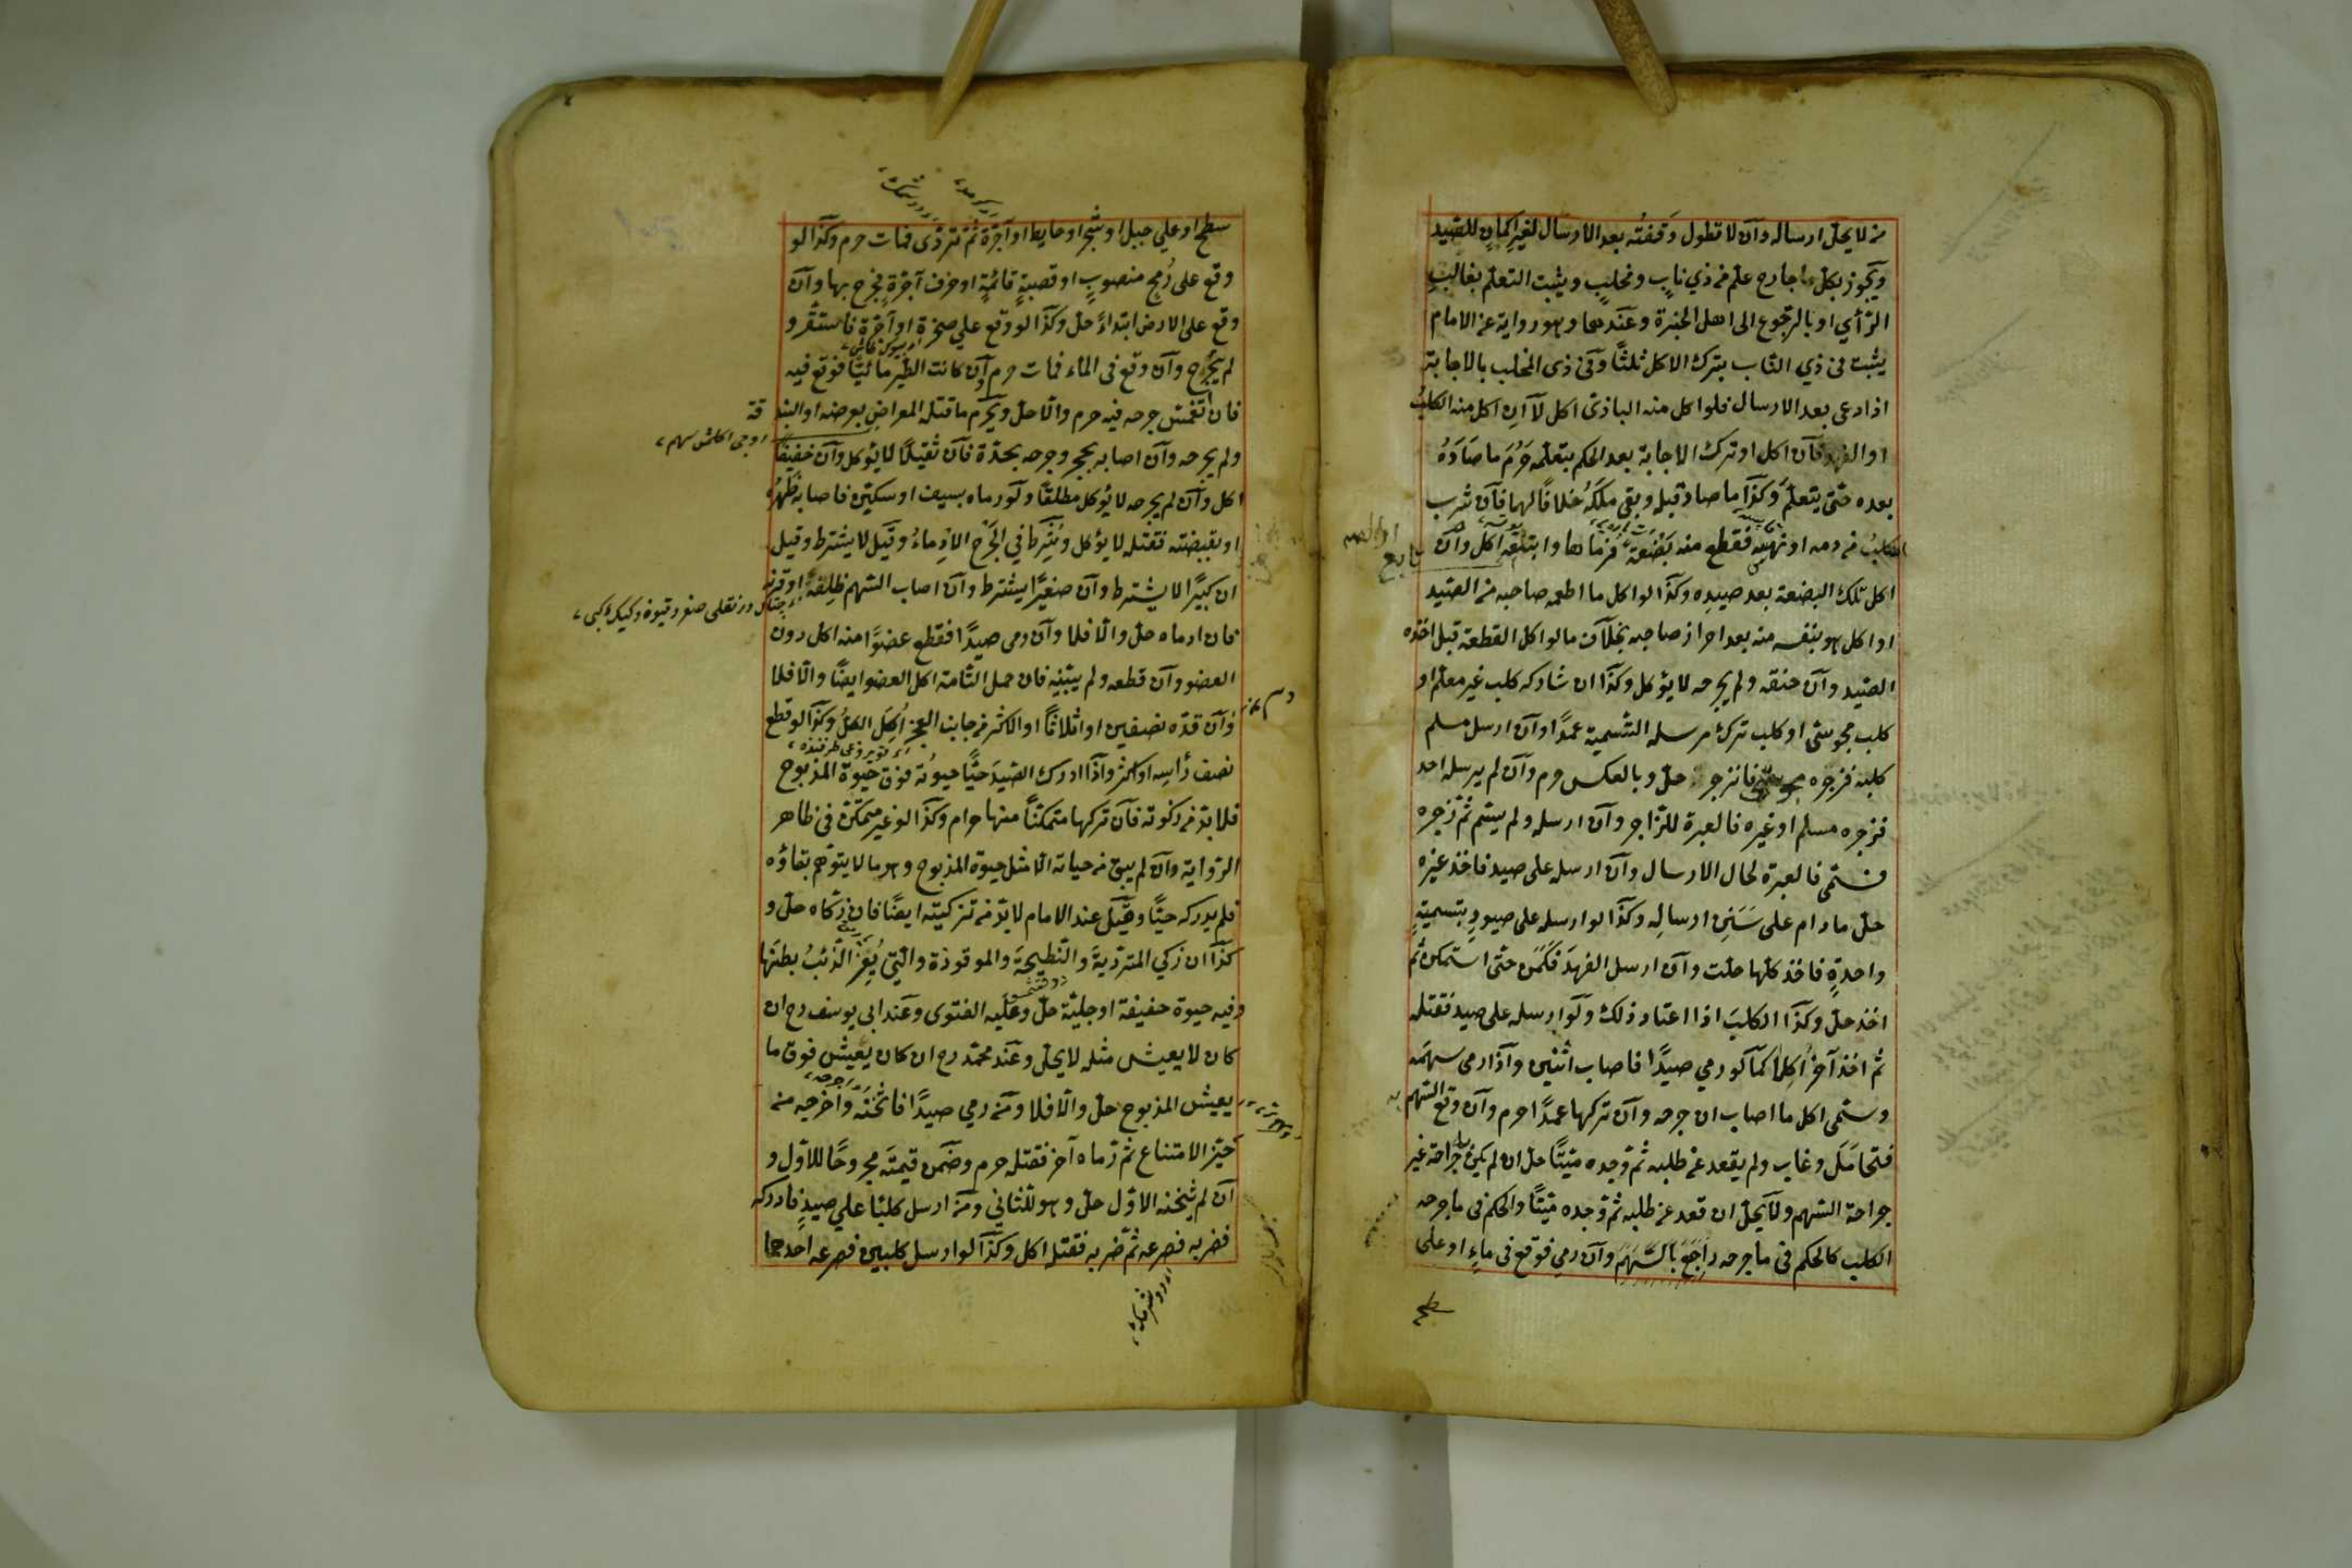 من لا يحل ارساله وآن لا تطول وَقفتُه بعد الارسال لغير اكمانٍ للصّيد
ويجوز بكل جارح علم من ذي نابٍ ومخلبٍ ويثبت التعلم بغالب
الرّأي او بالرّجوع الى اهل الخبرة وعندهما وهو رواية عن الامام
يثبت فى ذي النّاب بترك الاكل ثلثًا وفى ذى المخلب بالاجابة
اذا دعى بعد الارسال فلو اكل منه البازىّ اكل لآ ان اكل منه الكلب
او الفهد فآن اكل او ترك الاجابة بعد الحكم بتعلّمه حَرُمَ ما صَادَهُ
بعده حتّى يتعلّم وكذا ما صاد قبله وبقى ملكَهُ خلافًا لهما فآن شرب
الكلبُ من دمه او نهسَه فقطع منه بَضْعَة فرماها واتبعه اكل وآن
اكل تلك البضعة بعد صيدِه وكذا لو اكل ما اطعمه صاحبه من الصّيد
او اكل هو بنفسه منه بعد احراز صاحبه بخلاف ما لو اكل القطعة قبل اخذه
الصّيد وآن خنقه ولم يجرحه لا يؤكل وكذا ان شاركه كلب غير معلّم او
كلب مجوسّى او كلب ترك مرسله التّسمية عمدًا وآن ارسل مسلم
كلبه فزجره مجوسّى فانزجر حلّ وبالعكس حرم وآن لم يرسله احد
فزجره مسلم او غيره فالعبرة للزّاجر وآن ارسله ولم يسّم ثم زجره
فسّمى فالعبرة لحال الارسال وآن ارسله على صيد فاخذ غيره
حلّ مادام على سَنَنِ ارسالِه وكذا لو ارسله على صيودٍ بتسميةٍ
واحدةٍ فاخذ كلّها حلّت وآن ارسل الفهدَ فكمَنَ حتى استمكن ثم
اخذ حلّ وكذا الكلبَ اذا اعتاد ذلك ولَو ارسله على صيد فقتله
ثم اخذ آخر اُكِلا كمآ لو رمي صيدًا فاصاب اثنين وآذا رمى سهمَه
وسّمى اكل ما اصاب ان جرحه وآن تركها عمدًا حرم وآن وقع السّهم به
فتحامَلَ وغاب ولم يقعد عن طلبه ثم وجده ميّتًا حلّ ان لم يكن به جراحة غير
جراحة السّهم ولا يحلّ ان قعد عن طلبه ثم وجده ميّتًا والحكم فى ما جرحه
الكلب كالحكم فى ما جرحه السّهمَ وآن رمي فوقع فى ماءٍ او على
سطح
سطح او علي جبل او شجر او حايط او آجرّة ثم تردّى فمات حرم وكذا لو
وقع على رُمحٍ منصوبٍ او قصبةٍ قائمةٍ او حرف آجرّةٍ فجرح بها وآن
وقع على الارض ابتداءً حلّ وكذا لو وقع علي صخرة او آجرّة فاستقرّ و
لم يجرح وآن وقع فى الماء فمات حرم وآن كانت الطّير مائيًّا فوقع فيه
فان انغمس جرحه فيه حرم والّا حلّ ويحرم ما قتله المعراض بعرضه او البندقة
ولم يجرحه وآن اصابه بحجر وجرحه بحدّه فآن ثقيلًا لا يؤكل وآن خفيفًا
اكل وآن لم يجرحه لا يؤكل مطلقًا ولو رماه بسيف او سكّين فاصابه ظَهرُه
او بقبضته فقتله لا يؤكل وشُرِط في الجَرح الادماءُ وقيل لا يشترط وقيل
ان كبيرًا لا يشترط وآن صغيرًا يشترط وآن اصاب السّهم ظِلفَه او قرنه
فان ادماه حلّ والّا فلا وآن رمى صيدًا فقطع عضوًا منه اكل دون
العضو وآن قطعه ولم يبنه فان حمل التامه اكل العضو ايضًا والّا فلا
وآن قدّه نصفين او اثلاثًا والاكثر من جانب العجز اُكِلَ الكلُّ وكذا لو قطع
نصف رأسِه او اكثر وآذا ادرك الصّيدَ حيًّا حيوةً فوق حيوة المذبوح
فلا بدّ من ذكوته فآن تركها متمكنًّا منها حرام وكذا لو غير متمكّن فى ظاهر
الرّواية وآن لم يبق من حياته الّا مثل حيوة المذبوح وهو ما لا يتوهّم بقاؤه
فلم يدركه حيًّا وقيل عند الامام لا بدّ من تزكيته ايضًا فان ذكّاه حلّ و
كذا ان زكي المتردّيةَ والنّطيحةَ والموقوذة والّتي بَقَر الذّئبُ بطنَها
وفيه حيوة خفيفة او جليّة حلّ وعليه الفتوى وعند ابى يوسف رح ان
كان لا يعيش مثله لا يحلّ وعند محمّد رح ان كان يعيش فوق ما
يعيش المذبوح حلّ والّا فلا ومن رمي صيدًا فاثخنه واخرجه من
حيّز الامتناع ثم رماه آخر فقتله حرم وضمن قيمتَه مجروحًا للاوّل و
آن لم يثخنه الاوّل حلّ وهو للثّاني ومَن ارسل كلبًا علي صيدٍ فادركه
فضربه فصرعه ثمّ ضربه فقتله اكل وكذا لو ارسل كلبين فصرعه احدهما